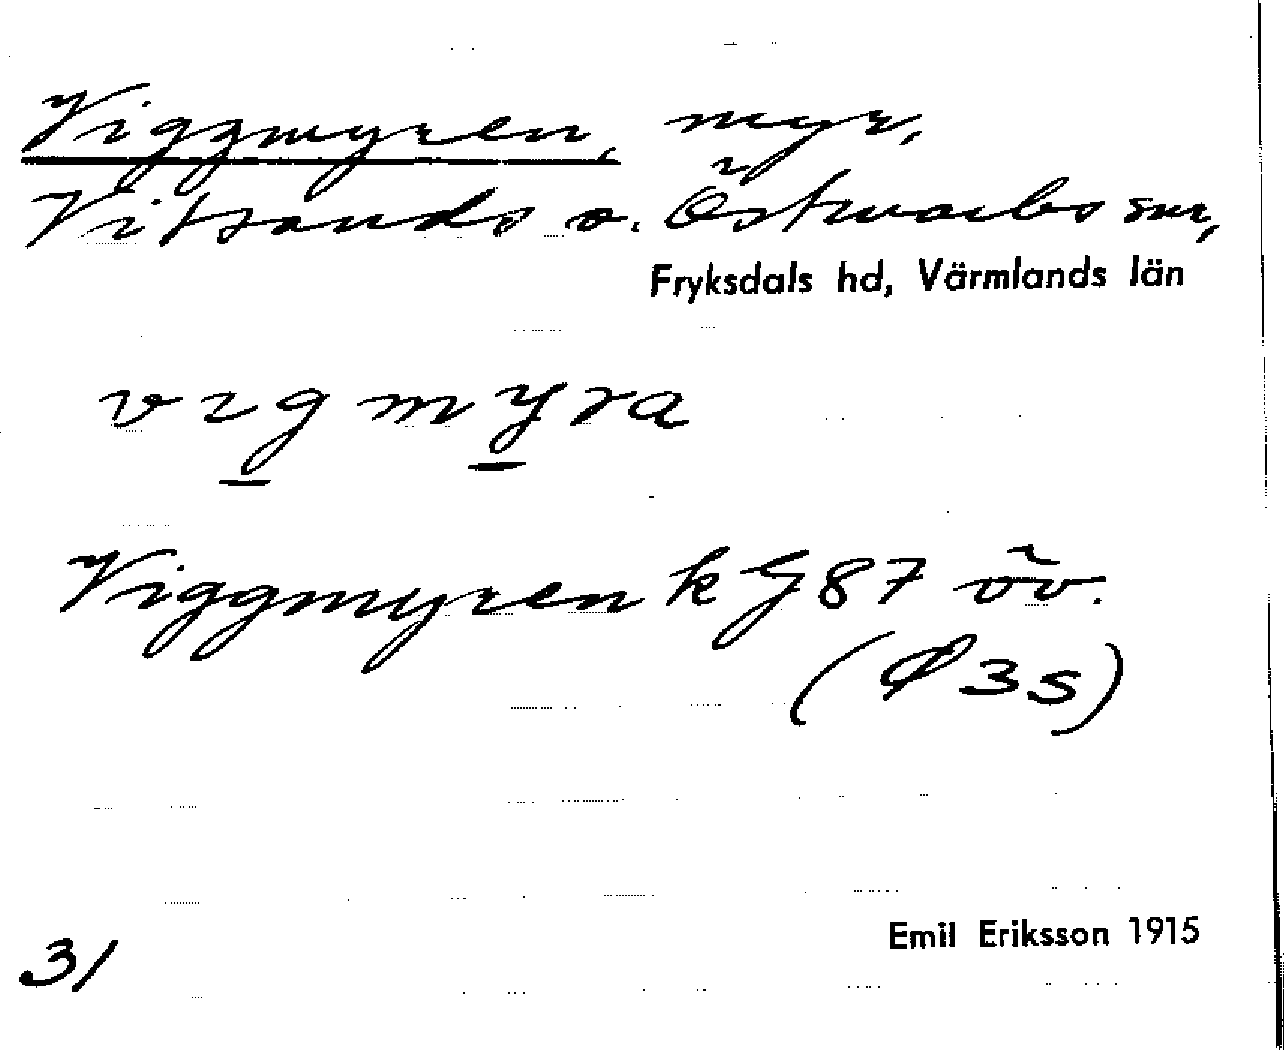 Viggmyren, myr,
Vitsands o. Östmarks snr,
Fryksdals hd, Värmlands län
vigmyra
Viggmyren k G 87 öv.
(Ø 35)
Emil Eriksson 1915
31